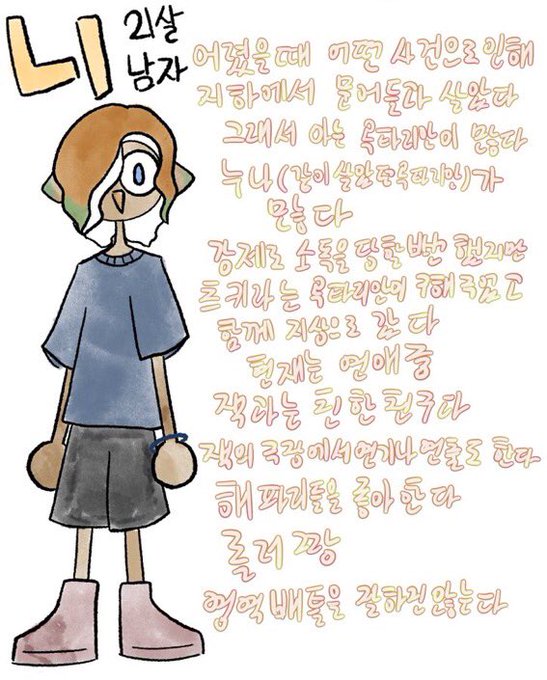 니
21살
남자
어렸을때 어떤 사건으로 인해
지하에서 문어들과 살았다
그래서 아는 옥타리안이 많다
누나(같이 살았던 옥타리안)가
많다
강제로 소독을 당할뻔 했지만
츠키라는 옥타리안이 구해주었고
함께 지상으로 갔다
현재는 연애중
잭과는 친한친구다
잭의 극장에서 연기나 연출도 한다
해파리들을 좋아한다
롤러 짱
영역배틀을 잘하진 않는다